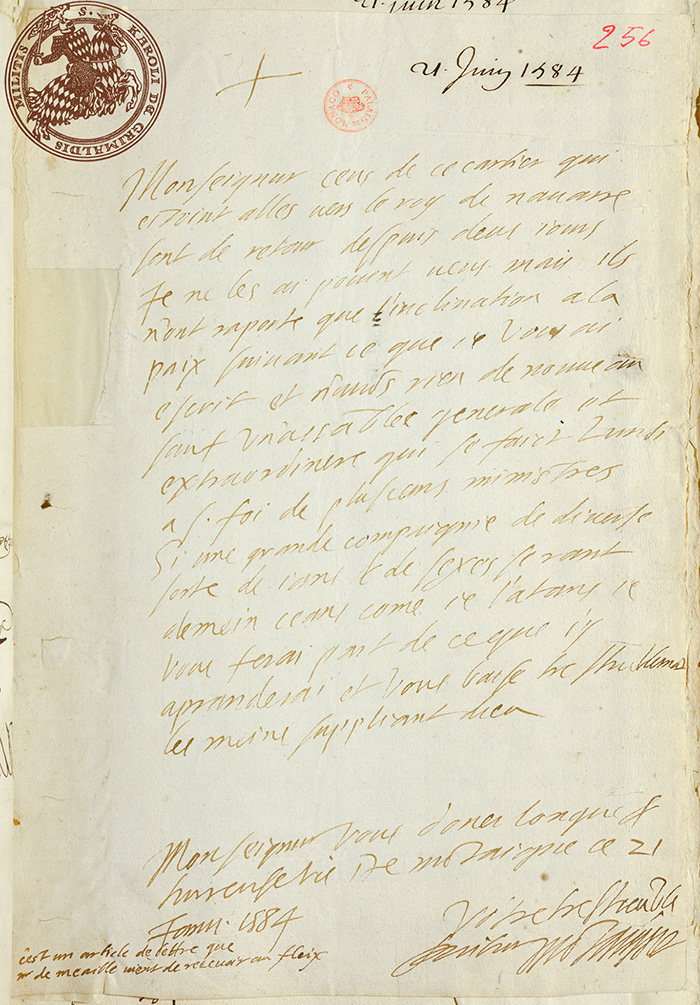 21. juin 1584
S. KAROLI DE GRIMALDIS MILITIS
256
21. Juin 1584
PALAIS MONACO
Monseignur ceus de ce cartier qui
estoint alles vers le roy de nauarre
sont de retour despuis deus iours
Je ne les ai pouint ueus mais ils
n'ont raporté que l'inclination a la
paix suiuant ce que ie vous ai
escrit et n'auōs rien de nouueau
sauf un'assāblee generale et
extraordinere qui se faict lundi
a s. foi de plusieurs ministres
Si une grande compaignie de diuerse
sorte de ians & de sexes se rant
demein ceans come ie l'atans ie
vous ferai part de ce que i'y
apranderai et vous baise treshublemāt
les meins suppliant dieu
Monseignur vous doner longue &
hureuse vie De mōtaigne ce 21
Januı. 1584
Vostre treshuble
seruitur Montaigne
c'est un article de lettre que
mr de meaille vient de receuoir au fleix